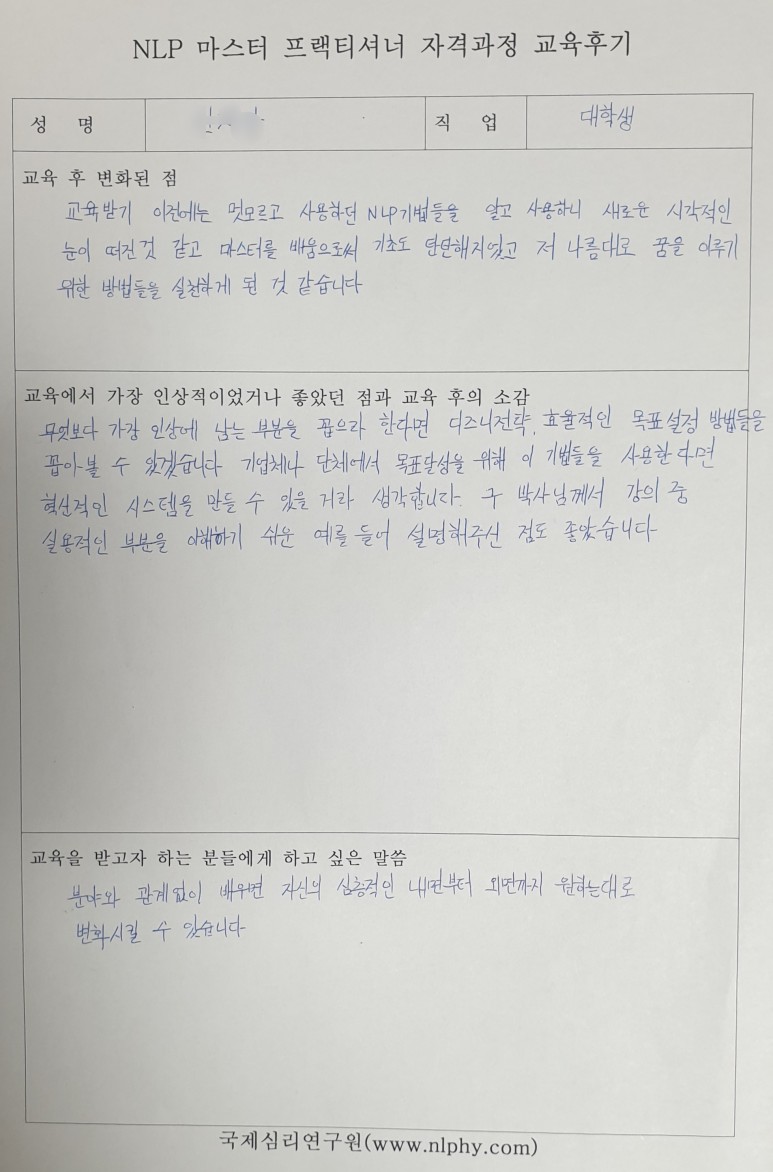 NLP 마스터 프랙티셔너 자격과정 교육후기
성 명
직 업 대학생
교육 후 변화된 점
교육받기 이전에는 멋모르고 사용하던 NLP기법들을 알고 사용하니 새로운 시각적인
눈이 떠진것 같고 마스터를 배움으로써 기초도 탄탄해지었고 저 나름대로 꿈을 이루기
위한 방법들을 실천하게 된 것 같습니다
교육에서 가장 인상적이었거나 좋았던 점과 교육 후의 소감
무엇보다 가장 인상에 남는 부분을 꼽으라 한다면 디즈니전략, 효율적인 목표설정 방법들을
꼽아볼 수 있겠습니다 기업체나 단체에서 목표달성을 위해 이 기법들을 사용한다면
혁신적인 시스템을 만들 수 있을 거라 생각합니다. 구 박사님께서 강의 중
실용적인 부분을 이해하기 쉬운 예를 들어 설명해주신 점도 좋았습니다
교육을 받고자 하는 분들에게 하고 싶은 말씀
분야와 관계없이 배우면 자신의 심층적인 내면부터 외면까지 원하는대로
변화시킬 수 있습니다
국제심리연구원(www.nlphy.com)